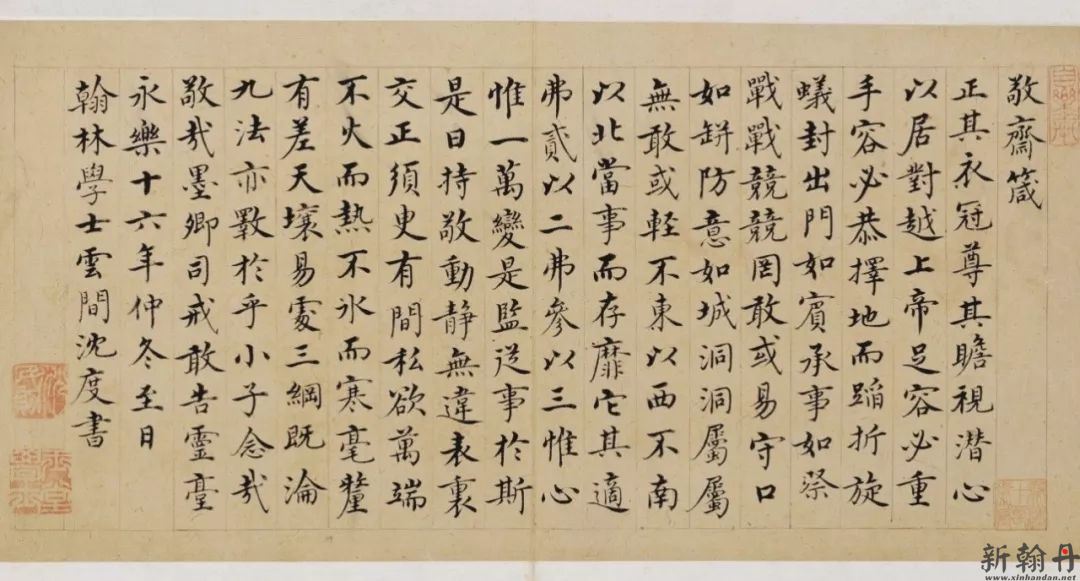 敬齋箴
正其衣冠尊其瞻視潛心
以居對越上帝足容必重
手容必恭擇地而蹈折旋
蟻封出門如賓承事如祭
戰戰競競罔敢或易守口
如缾防意如城洞洞屬屬
無敢或輕不東以西不南
以北當事而存靡它其適
弗貳以二弗參以三惟心
惟一萬變是監從事於斯
是曰持敬動靜無違表裏
交正須臾有間私欲萬端
不火而熱不氷而寒毫釐
有差天壤易處三綱既淪
九法亦斁於乎小子念哉
敬哉墨卿司戒敢告靈臺
永樂十六年仲冬至日
翰林學士雲間沈度書
新翰丹
www.xinhandan.net